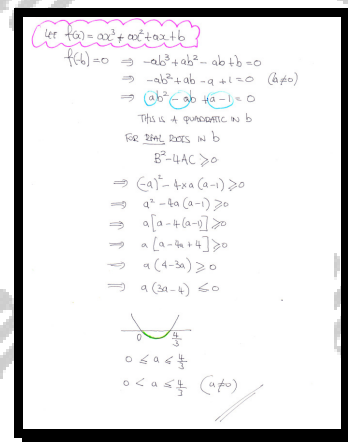 Let f(x) = ax³ + ax² + ax + b
f(-b) = 0 ⇒ -ab³ + ab² - ab + b = 0
⇒ -ab² + ab - a + 1 = 0 (b≠0)
⇒ ab² - ab + a - 1 = 0
THIS IS A QUADRATIC IN b
FOR REAL ROOTS IN b
B² - 4AC ⩾ 0
⇒ (-a)² - 4×a(a-1) ⩾ 0
⇒ a² - 4a(a-1) ⩾ 0
⇒ a[a - 4(a-1)] ⩾ 0
⇒ a[a - 4a + 4] ⩾ 0
⇒ a(4 - 3a) ⩾ 0
⇒ a(3a - 4) ⩽ 0
0 4/3
0 ⩽ a ⩽ 4/3
0 < a ⩽ 4/3 (a≠0)